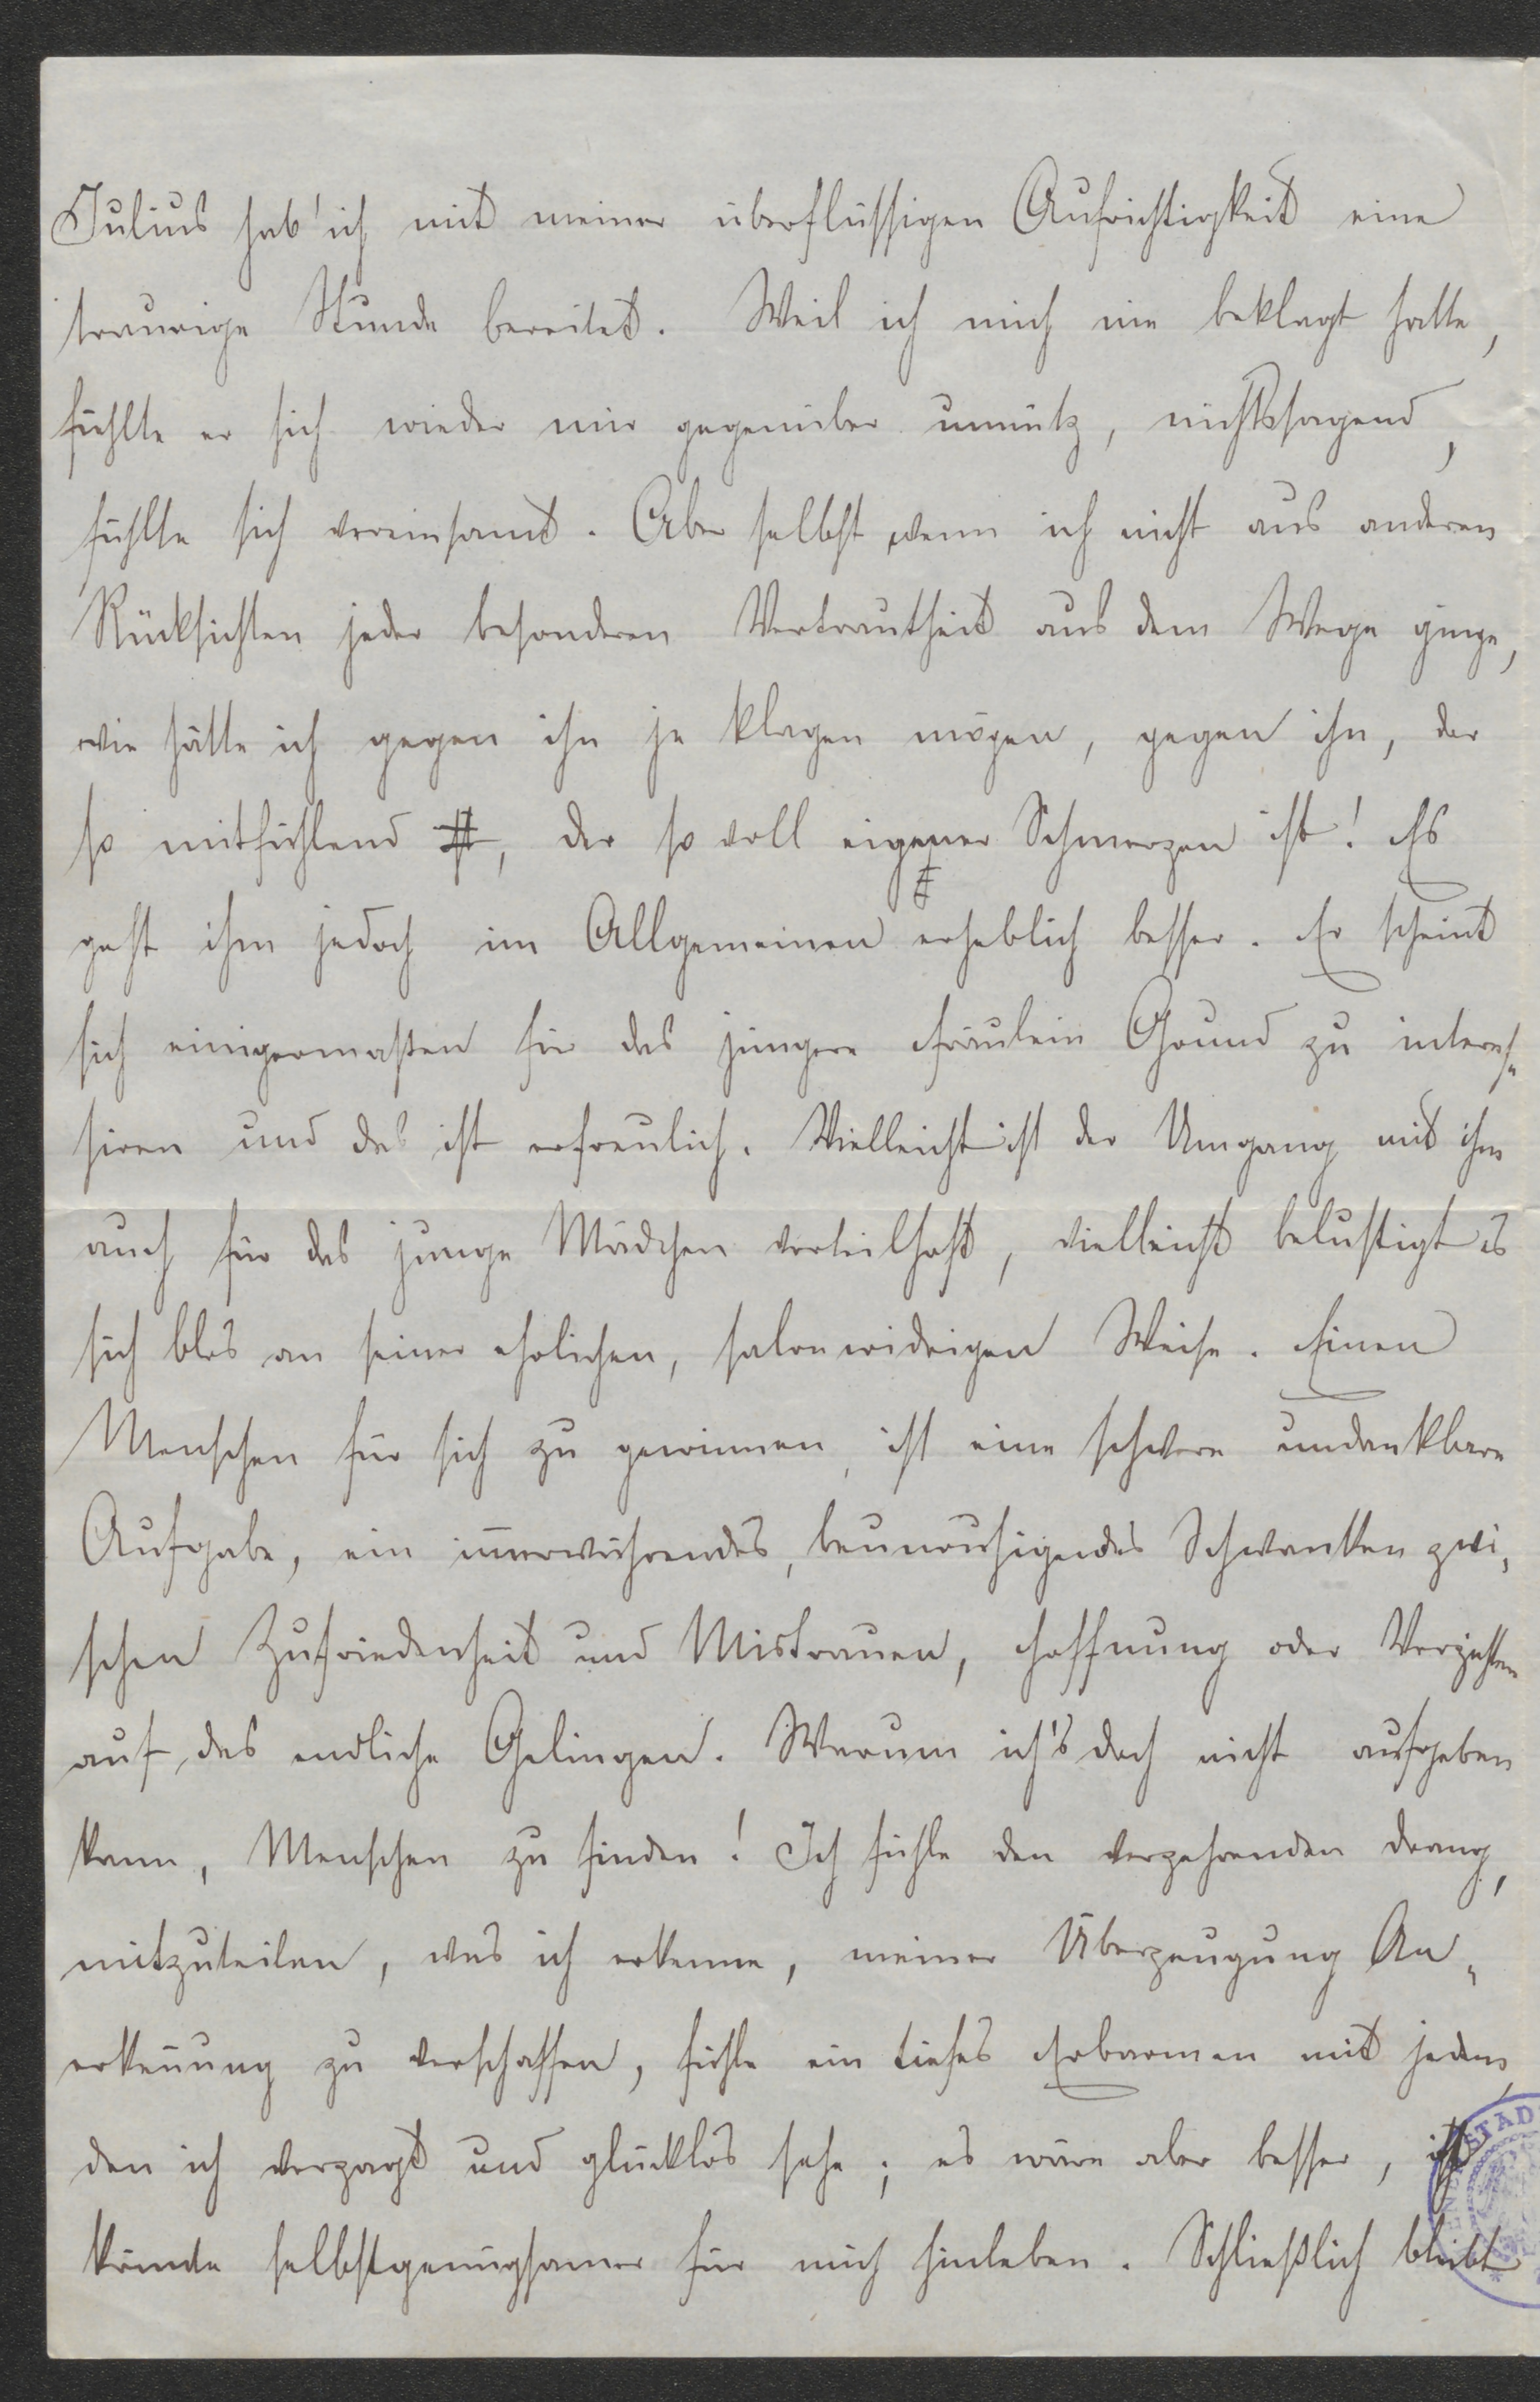 Julius hab' ich mit meiner überflüssigen Aufrichtigkeit eine
traurige Stunde bereitet. Weil ich mich nie beklagt hatte,
fühlte er sich wieder mir gegenüber unnütz, nichtssagend,
fühlte sich vereinsamt. Aber selbst wenn ich nicht aus anderen
Rücksichten jeder besonderen Vertrautheit aus dem Wege ginge,
wie hätte ich gegen ihn je klagen mögen, gegen ihn, der
so mitfühlend ist, der so voll eigener Schmerzen ist! Es
geht ihm jedoch im Allgemeinen erheblich besser. Er scheint
sich einigermaßen für das jüngere Fräulein Grund zu interes-
siren und das ist erfreulich. Vielleicht ist der Umgang mit ihm
auch für das junge Mädchen vorteilhaft, vielleicht belustigt es
sich blos an seiner ehrlichen, salonwidrigen Weise. Einen
Menschen für sich zu gewinnen, ist eine schwere undankbare
Aufgabe, ein immerwährendes, beunruhigendes Schwanken zwi-
schen Zufriedenheit und Mistrauen, Hoffnung oder Verzichten
auf das endliche Gelingen. Warum ich's doch nicht aufgeben
kann, Menschen zu finden! Ich fühle den verzehrenden Drang,
mitzuteilen, was ich erkenne, meiner Überzeugung An-
erkennung zu verschaffen, fühle ein tiefes Erbarmen mit jedem,
den ich verzagt und glücklos sehe; es wäre aber besser, ich
könnte selbstgenügsamer für mich hinleben. Schließlich bleibt